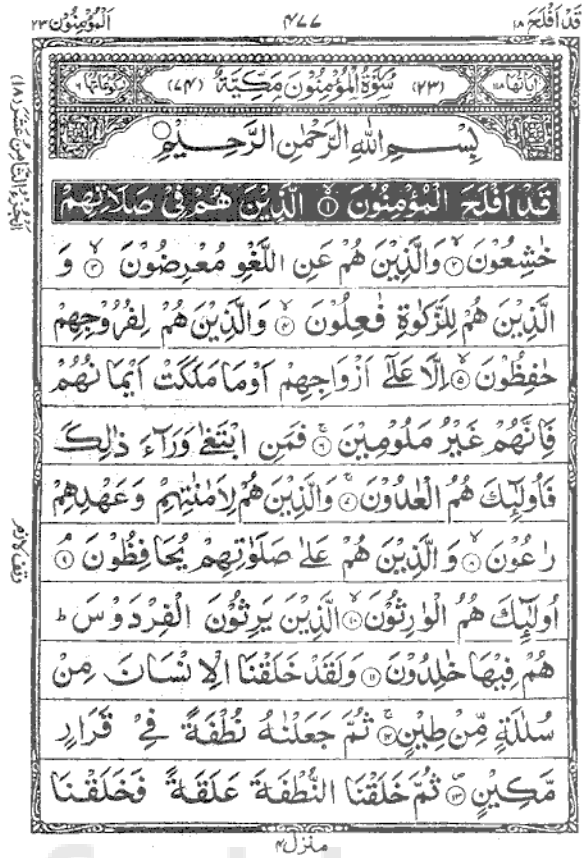 قَدْ اَفْلَحَ ١٨ ٤٧٧ اَلْمُؤْمِنُوْن ٢٣
اٰيَاتُهَا ١١٨ (٢٣) سُوْرَةُ الْمُؤْمِنُوْنَ مَكِّيَّةٌ (٧٤) رُكُوْعَاتُهَا ٦
بِسْمِ اللّٰهِ الرَّحْمٰنِ الرَّحِيْمِ
قَدْ اَفْلَحَ الْمُؤْمِنُوْنَ ۙ﴿١﴾ الَّذِيْنَ هُمْ فِيْ صَلَاتِهِمْ
خٰشِعُوْنَ ۙ﴿٢﴾ وَالَّذِيْنَ هُمْ عَنِ اللَّغْوِ مُعْرِضُوْنَ ۙ﴿٣﴾ وَ
الَّذِيْنَ هُمْ لِلزَّكٰوةِ فٰعِلُوْنَ ۙ﴿٤﴾ وَالَّذِيْنَ هُمْ لِفُرُوْجِهِمْ
حٰفِظُوْنَ ۙ﴿٥﴾ اِلَّا عَلٰٓى اَزْوَاجِهِمْ اَوْمَا مَلَكَتْ اَيْمَانُهُمْ
فَاِنَّهُمْ غَيْرُ مَلُوْمِيْنَ ۚ﴿٦﴾ فَمَنِ ابْتَغٰى وَرَآءَ ذٰلِكَ
فَاُولٰٓئِكَ هُمُ الْعٰدُوْنَ ۚ﴿٧﴾ وَالَّذِيْنَ هُمْ لِاَمٰنٰتِهِمْ وَعَهْدِهِمْ
رٰعُوْنَ ۙ﴿٨﴾ وَالَّذِيْنَ هُمْ عَلٰى صَلَوٰتِهِمْ يُحَافِظُوْنَ ۘ﴿٩﴾
اُولٰٓئِكَ هُمُ الْوٰرِثُوْنَ ۙ﴿١٠﴾ الَّذِيْنَ يَرِثُوْنَ الْفِرْدَوْسَ ط
هُمْ فِيْهَا خٰلِدُوْنَ ﴿١١﴾ وَلَقَدْ خَلَقْنَا الْاِنْسَانَ مِنْ
سُلٰلَةٍ مِّنْ طِيْنٍ ۚ﴿١٢﴾ ثُمَّ جَعَلْنٰهُ نُطْفَةً فِيْ قَرَارٍ
مَّكِيْنٍ ۪﴿١٣﴾ ثُمَّ خَلَقْنَا النُّطْفَةَ عَلَقَةً فَخَلَقْنَا
منزل ٤
وقف لازم